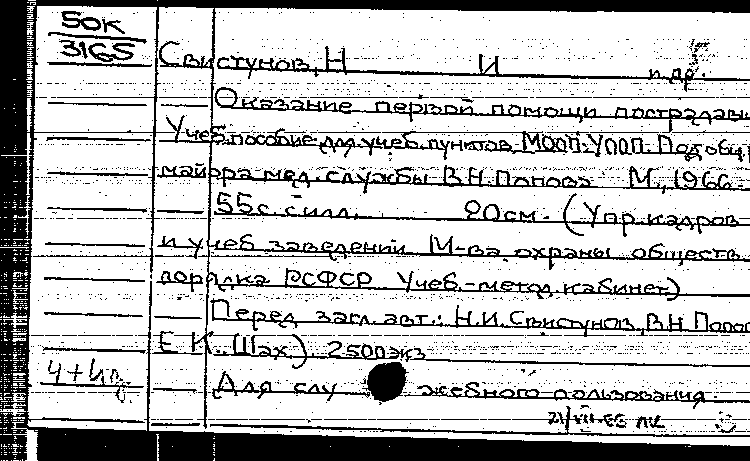 50К
3165
Свистунов, Н И и др.
Оказание первой помощи пострадавш
Учеб. пособие для учеб. пунктов МООП-УООП. Под общ
майора мед. службы В.Н. Попова М., 1966.
55с. с илл. 20см. (Упр. кадров
и учеб заведений М-ва охраны обществ.
порядка РСФСР Учеб.-метод. кабинет)
Перед загл. авт.: Н.И. Свистунов, В.Н Попов
Е К. Шах) 2500экз
Для слу жебного пользования